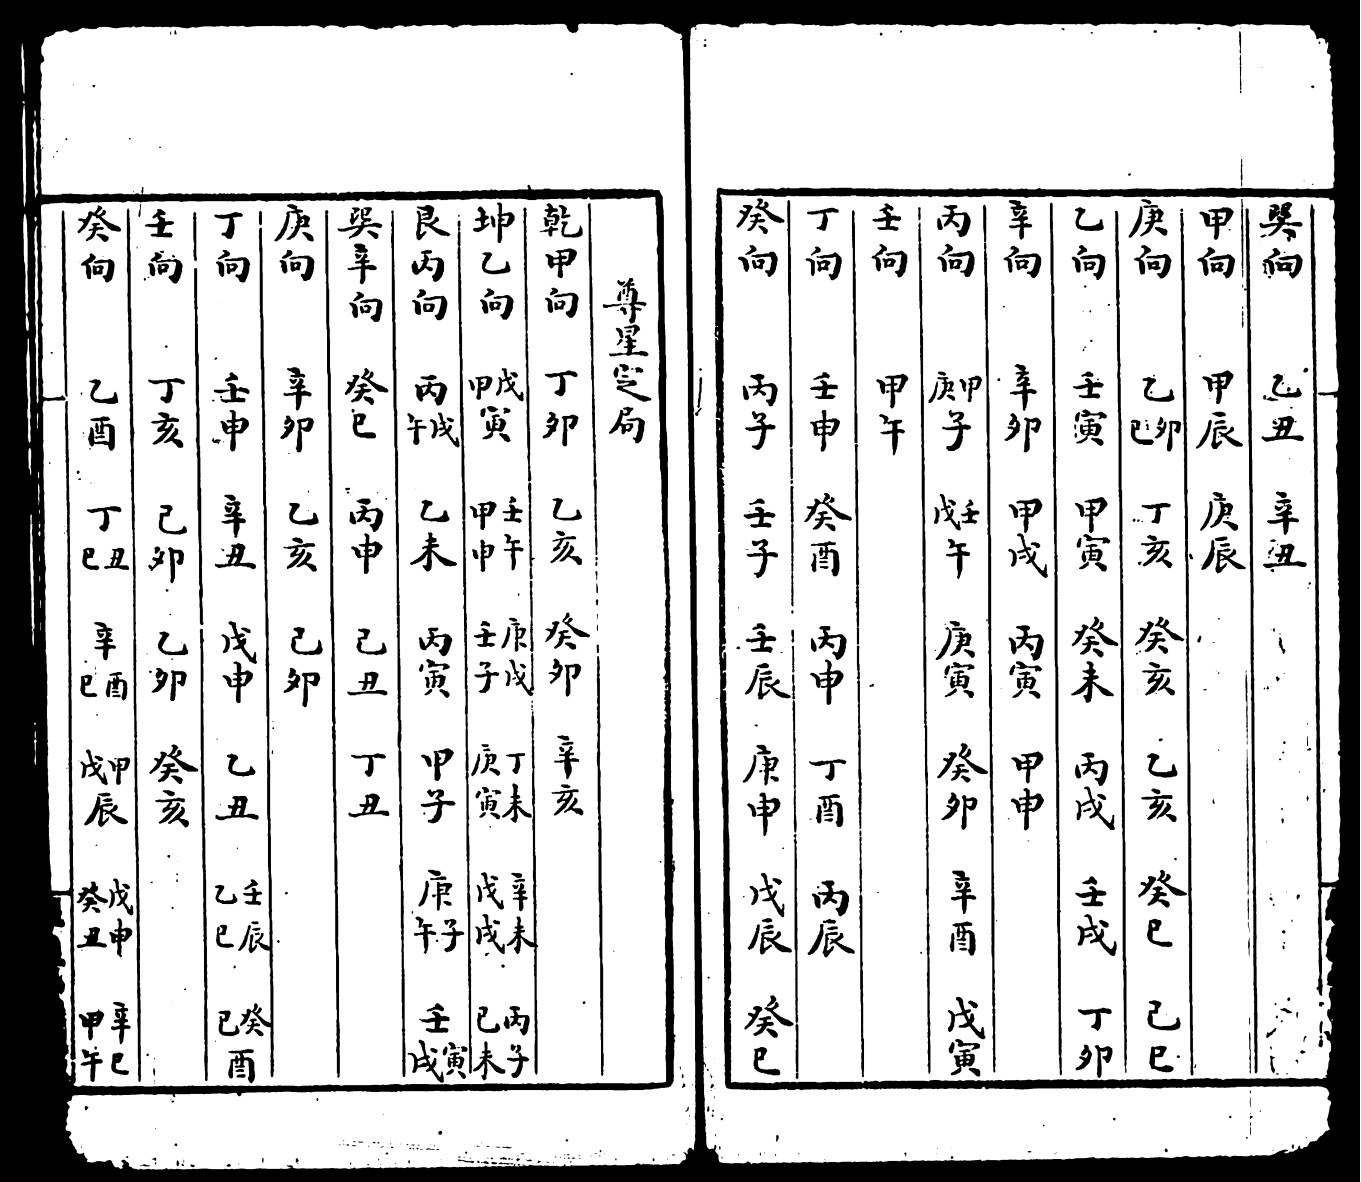 巽向 乙丑 辛丑
甲向 甲辰 庚辰
庚向 乙卯巳 丁亥 癸亥 乙亥 癸巳 己巳
乙向 壬寅 甲寅 癸未 丙戌 壬戌 丁卯
辛向 辛卯 甲戌 丙寅 甲申
丙向 甲庚子 壬戊午 庚寅 癸卯 辛酉 戊寅
壬向 甲午
丁向 壬申 癸酉 丙申 丁酉 丙辰
癸向 丙子 壬子 壬辰 庚申 戊辰 癸巳
尊星定局
乾甲向 丁卯 乙亥 癸卯 辛亥
坤乙向 戊甲寅 壬午甲申 庚戌壬子 丁未庚寅 辛未戊戌 丙子己未
艮丙向 丙戌午 乙未 丙寅 甲子 庚子午 壬寅戌
巽辛向 癸巳 丙申 己丑 丁丑
庚向 辛卯 乙亥 己卯
丁向 壬申 辛丑 戊申 乙丑 壬辰乙巳 癸己酉
壬向 丁亥 己卯 乙卯 癸亥
癸向 乙酉 丁丑巳 辛酉巳 甲戊辰 戊申癸丑 辛巳甲午